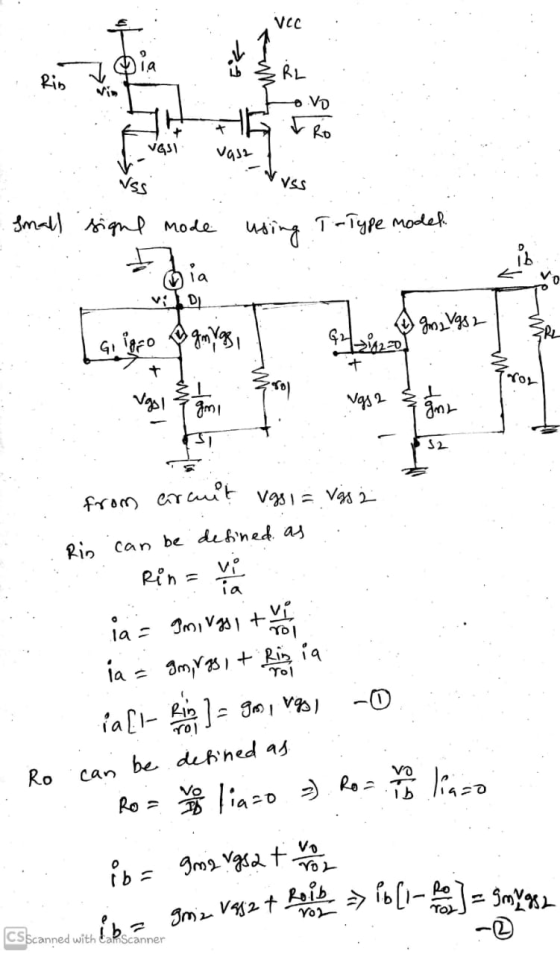 Vcc
ia
ib
RL
Rin
Vin
VO
Ro
+
+
VGS1
VGS2
-
-
VSS
VSS
Small signal mode using T-Type model
ia
ib
Vo
Vi
D1
G1 ig=0
gm1Vgs1
G2 ig2=0
gm2Vgs2
RL
+
+
Vgs1
1/gm1
ro1
Vgs2
1/gm2
ro2
-
-
S1
S2
from circuit Vgs1 = Vgs2
Rin can be defined as
Rin = Vi/ia
ia = gm1Vgs1 + Vi/ro1
ia = gm1Vgs1 + Rin/ro1 ia
ia[1 - Rin/ro1] = gm1 Vgs1 - ①
Ro can be defined as
Ro = Vo/Ib |ia=0 ⇒ Ro = Vo/ib |ia=0
ib = gm2 Vgs2 + Vo/ro2
ib = gm2 Vgs2 + Roib/ro2 ⇒ ib[1 - Ro/ro2] = gm2Vgs2
- ②
CS Scanned with CamScanner